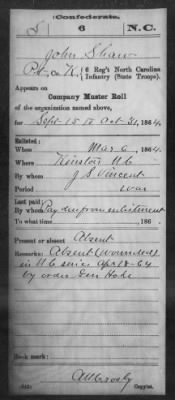 Confederate.
S 6 N.C.
John Shaw
Pvt, Co. K, 6 Reg't North Carolina
Infantry (State Troops).
Appears on
Company Muster Roll
of the organization named above,
for Sept 15 to Oct 31, 1864.
Enlisted:
When Mar 6, 1864.
Where Kinston N.C.
By whom J S Vincent
Period war
Last paid:
By whom Pay due from enlistment
To what time , 186 .
Present or absent Absent
Remarks: Absent (wounded)
in N.C. since Apr 18-64
by order Gen Hoke
Book mark:
(642) Copyist.